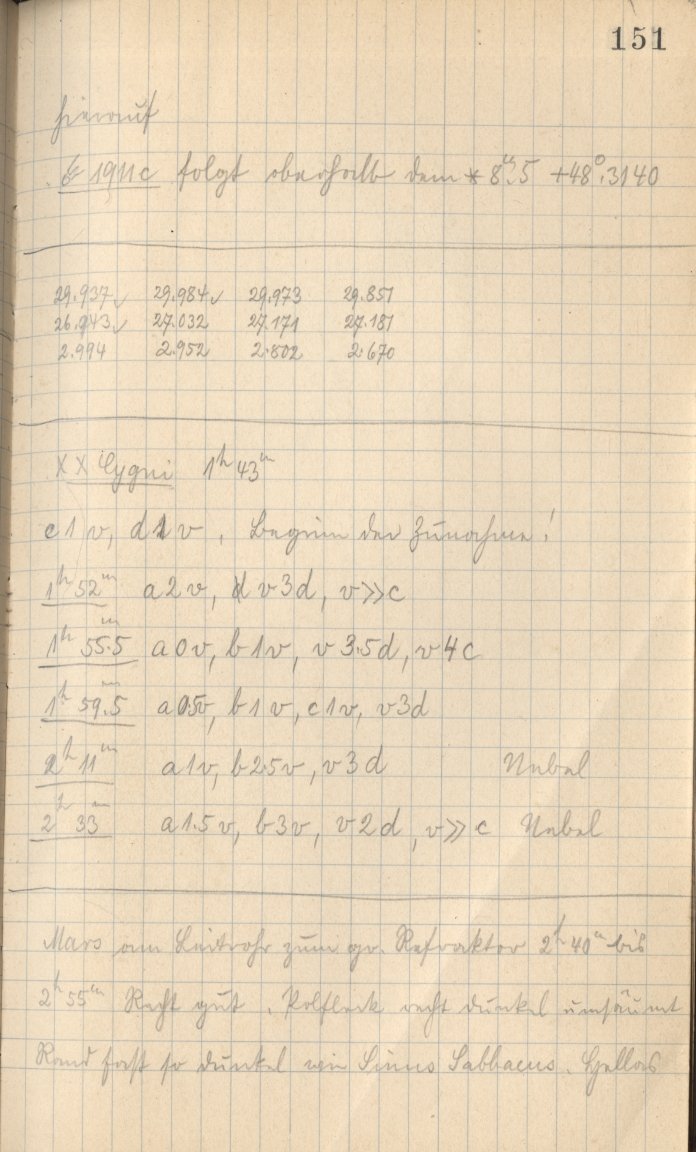 151
hierauf
☄ 1911c folgt oberhalb dem * 8ᵐ.5 +48°.3140
29.937✓ 29.984✓ 29.973 29.851
26.943✓ 27.032 27.171 27.181
2.994 2.952 2.802 2.670
XX Cygni 1ʰ 43ᵐ
c1v, d1v, Beginn der Zunahme!
1ʰ 52ᵐ a2v, v3d, v≫c
1ʰ 55.5ᵐ a0v, b1v, v3.5d, v4c
1ʰ 59.5ᵐ a0.5v, b1v, c1v, v3d
2ʰ 11ᵐ a1v, b2.5v, v3d Nebel
2ʰ 33ᵐ a1.5v, b3v, v2d, v≫c Nebel
Mars am Leitrohr zum gr. Refraktor 2ʰ 40ᵐ bis
2ʰ 55ᵐ Recht gut. Polfleck recht dunkel umsäumt
Rand fast so dunkel wie Sinus Sabbaeus. Hellas